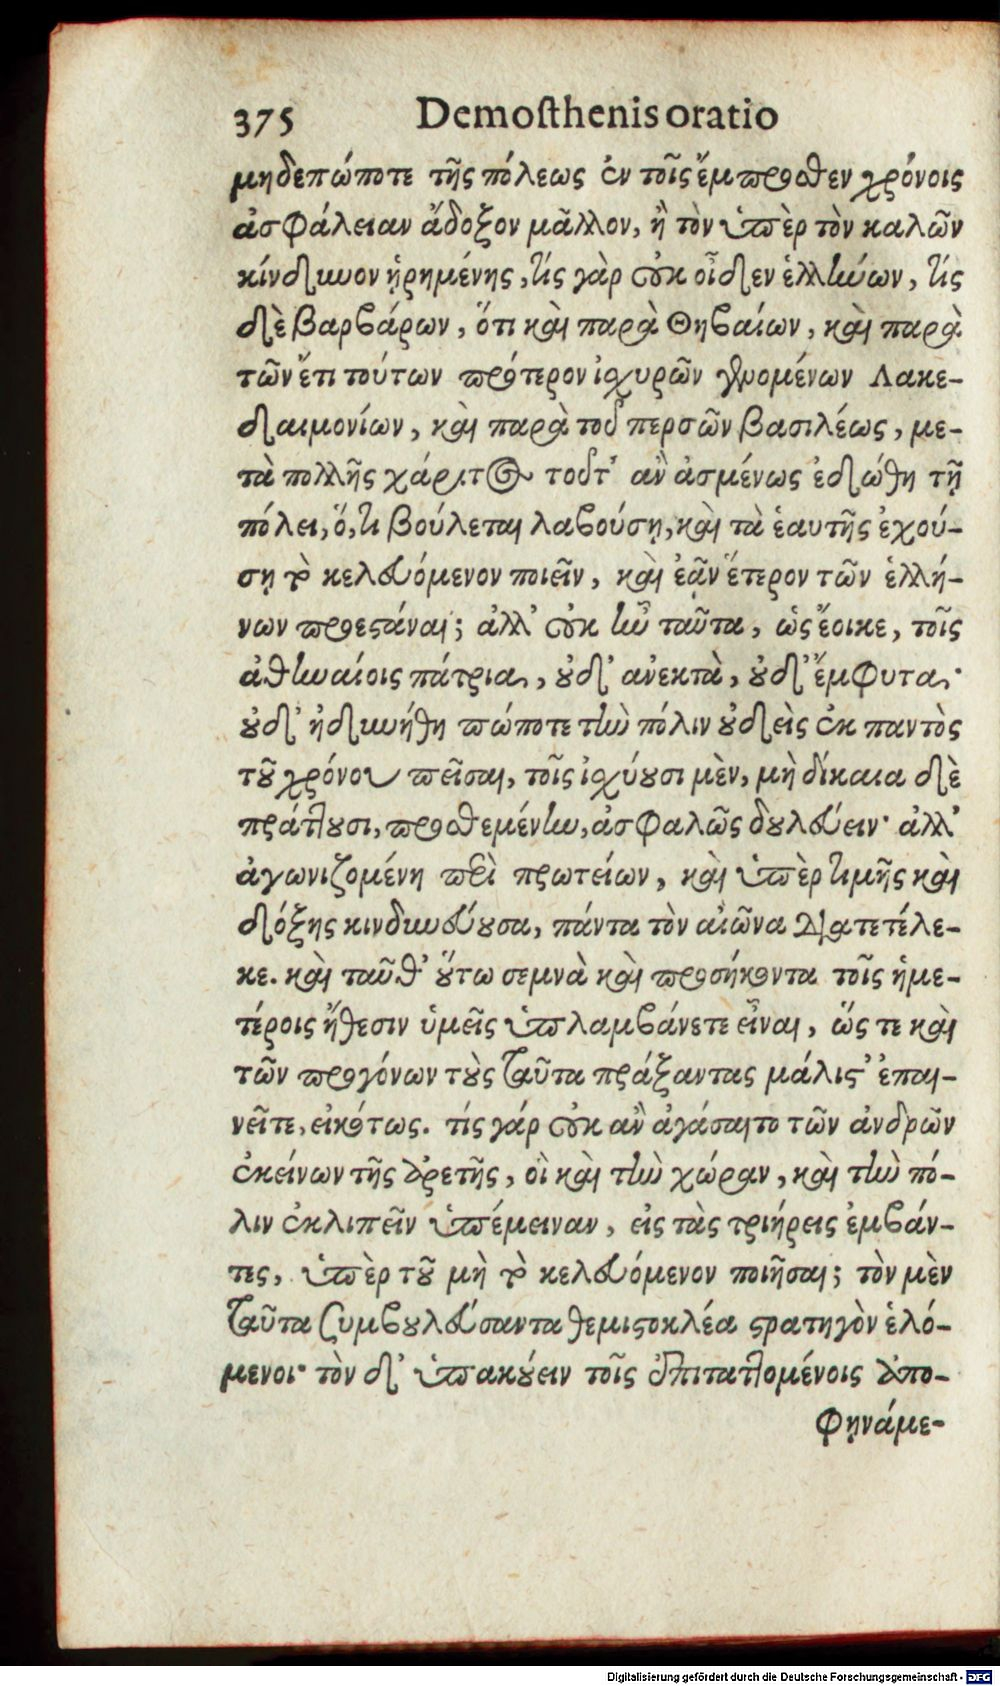 375 Demosthenis oratio
μηδεπώποτε τῆς πόλεως ἐν τοῖς ἔμπροσθεν χρόνοις
ἀσφάλειαν ἄδοξον μᾶλλον, ἢ τὸν ὑπὲρ τὸν καλῶν
κίνδυνον ᾑρημένης, τίς γὰρ οὐκ οἶδεν ἑλλήνων, τίς
δὲ βαρβάρων, ὅτι καὶ παρὰ Θηβαίων, καὶ παρὰ
τῶν ἔτι τούτων πρότερον ἰσχυρῶν γενομένων Λακε-
δαιμονίων, καὶ παρὰ τοῦ περσῶν βασιλέως, με-
τὰ πολλῆς χάριτος τοῦτ' ἂν ἀσμένως ἐδώθη τῇ
πόλει, ὅ, τι βούλεται λαβούσῃ, καὶ τὰ ἑαυτῆς ἐχού-
σῃ τὸ κελευόμενον ποιεῖν, καὶ ἐᾷν ἕτερον τῶν ἑλλή-
νων προεστάναι; ἀλλ' οὐκ ἦν ταῦτα, ὡς ἔοικε, τοῖς
ἀθηναίοις πάτρια, οὐδ' ἀνεκτὰ, οὐδ' ἔμφυτα·
οὐδ' ἠδυνήθη πώποτε τὴν πόλιν οὐδεὶς ἐκ παντὸς
τοῦ χρόνου πεῖσαι, τοῖς ἰσχύουσι μὲν, μὴ δίκαια δὲ
πράττουσι, προσθεμένην, ἀσφαλῶς δουλεύειν· ἀλλ'
ἀγωνιζομένη περὶ πρωτείων, καὶ ὑπὲρ τιμῆς καὶ
δόξης κινδυνεύουσα, πάντα τὸν αἰῶνα διατετέλε-
κε. καὶ ταῦθ' οὕτω σεμνὰ καὶ προσήκοντα τοῖς ἡμε-
τέροις ἤθεσιν ὑμεῖς ὑπολαμβάνετε εἶναι, ὥς τε καὶ
τῶν προγόνων τοὺς ταῦτα πράξαντας μάλιστ' ἐπαι-
νεῖτε, εἰκότως. τίς γάρ οὐκ ἂν ἀγάσαιτο τῶν ἀνδρῶν
ἐκείνων τῆς ἀρετῆς, οἳ καὶ τὴν χώραν, καὶ τὴν πό-
λιν ἐκλιπεῖν ὑπέμειναν, εἰς τὰς τριήρεις ἐμβάν-
τες, ὑπὲρ τοῦ μὴ τὸ κελευόμενον ποιῆσαι; τὸν μὲν
ταῦτα συμβουλεύσαντα θεμιστοκλέα στρατηγὸν ἑλό-
μενοι· τὸν δ' ὑπακούειν τοῖς ἐπιταττομένοις ἀπο-
φηνάμε-
Digitalisierung gefördert durch die Deutsche Forschungsgemeinschaft - DFG